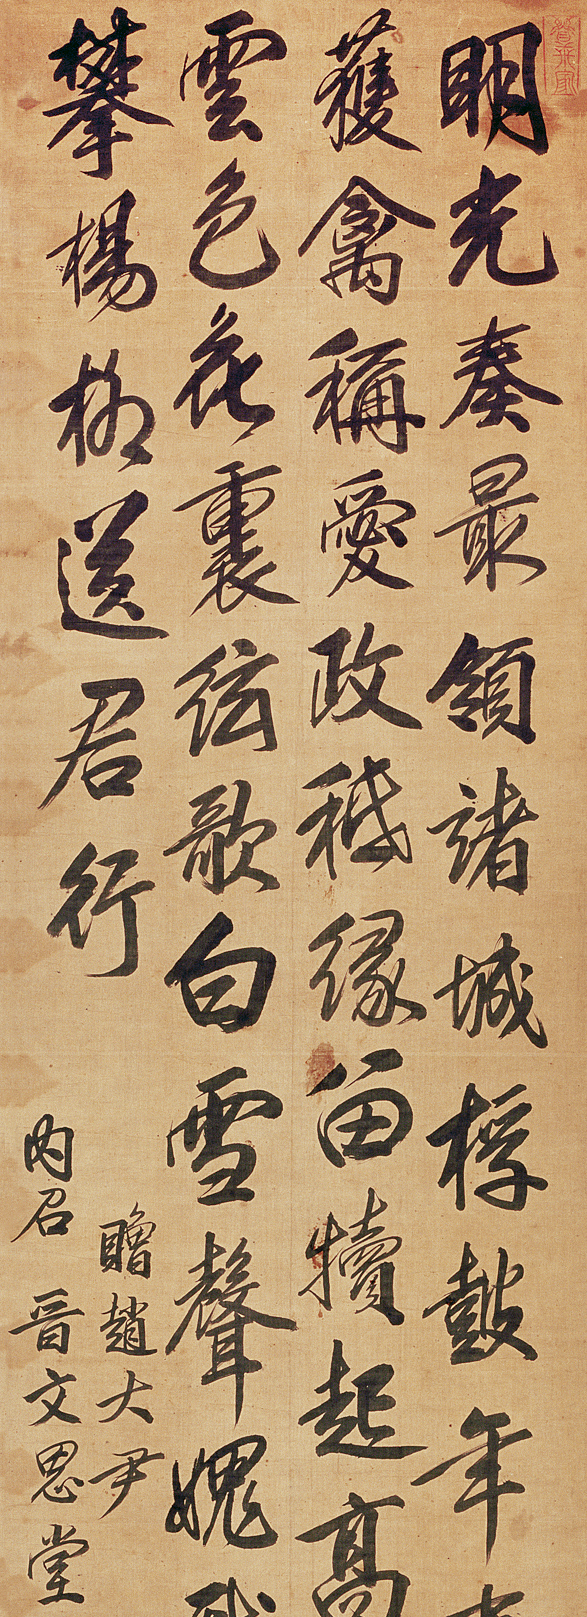 明光奏最領諸城桴鼓年
獲禽稱愛政秪緣留犢起高
雲色花裏絃歌白雪聲媿我
攀楊柳送君行
贈趙大尹
內召 晉文思堂